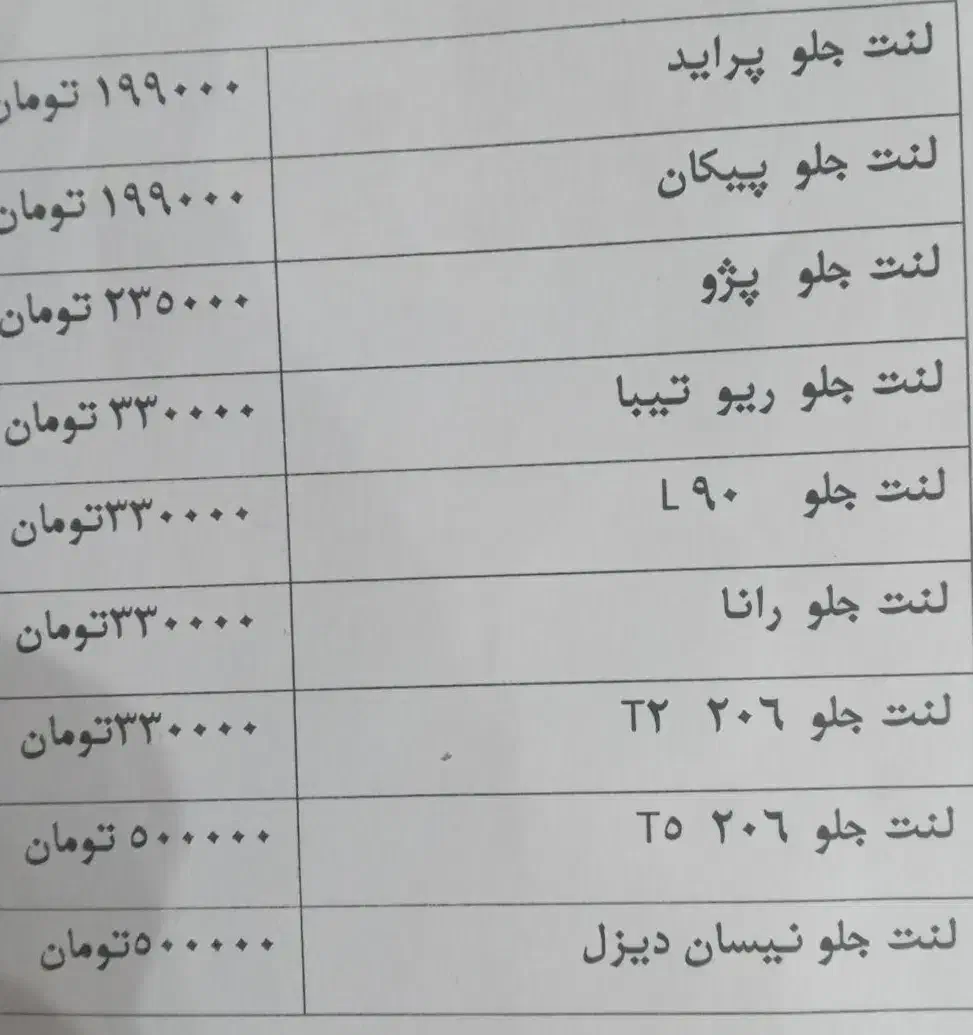 لنت جلو پراید ۱۹۹۰۰۰ تومان
لنت جلو پیکان ۱۹۹۰۰۰ تومان
لنت جلو پژو ۲۳۵۰۰۰ تومان
لنت جلو ریو تیبا ۳۳۰۰۰۰ تومان
لنت جلو L۹۰ ۳۳۰۰۰۰تومان
لنت جلو رانا ۳۳۰۰۰۰تومان
لنت جلو ۲۰۶ T۲ ۳۳۰۰۰۰تومان
لنت جلو ۲۰۶ T۵ ۵۰۰۰۰۰ تومان
لنت جلو نیسان دیزل ۵۰۰۰۰۰تومان